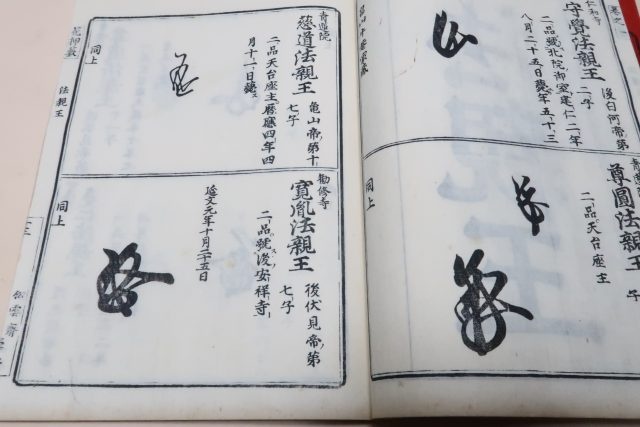 仁和寺
守覺法親王
後白河帝第
二子
二品號北院御室建仁二年
八月二十五日薨年五十三
尊圓法親王
二品天台座主
同上
青蓮院
慈道法親王
龜山帝第十
七子
二品天台座主曆應四年四
月十一日薨ス
同上
勸修寺
寬胤法親王
後伏見帝ノ第
七子
二品號後安祥寺
延文元年十月二十五日
同上
花押藪
法親王